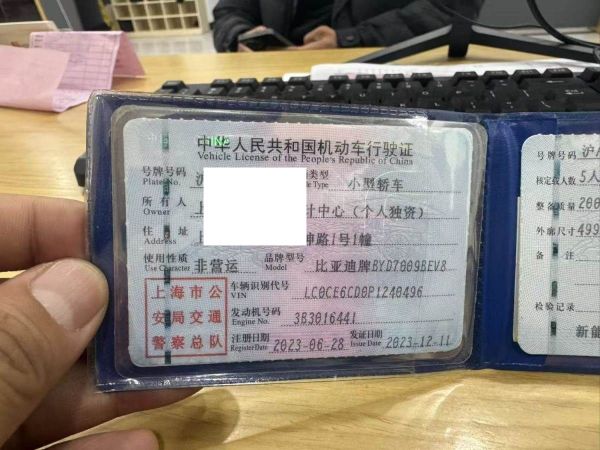 中华人民共和国机动车行驶证
Vehicle License of the People's Republic of China
号牌号码 沪 类型 小型轿车
Plate No. Type
所有人 上 计中心（个人独资）
Owner
住址 上 神路1号1幢
Address
使用性质 非营运 品牌型号 比亚迪牌BYD7009BEV8
Use Character Model
上海市公
安局交通
警察总队
车辆识别代号 LC0CE6CD0P1240496
VIN
发动机号码 3B3016441
Engine No.
注册日期 2023-06-28 发证日期 2023-12-11
Register Date Issue Date
号牌号码 沪A
核定载人数 5人
整备质量 200
外廓尺寸 499
备注
检验记录
新能